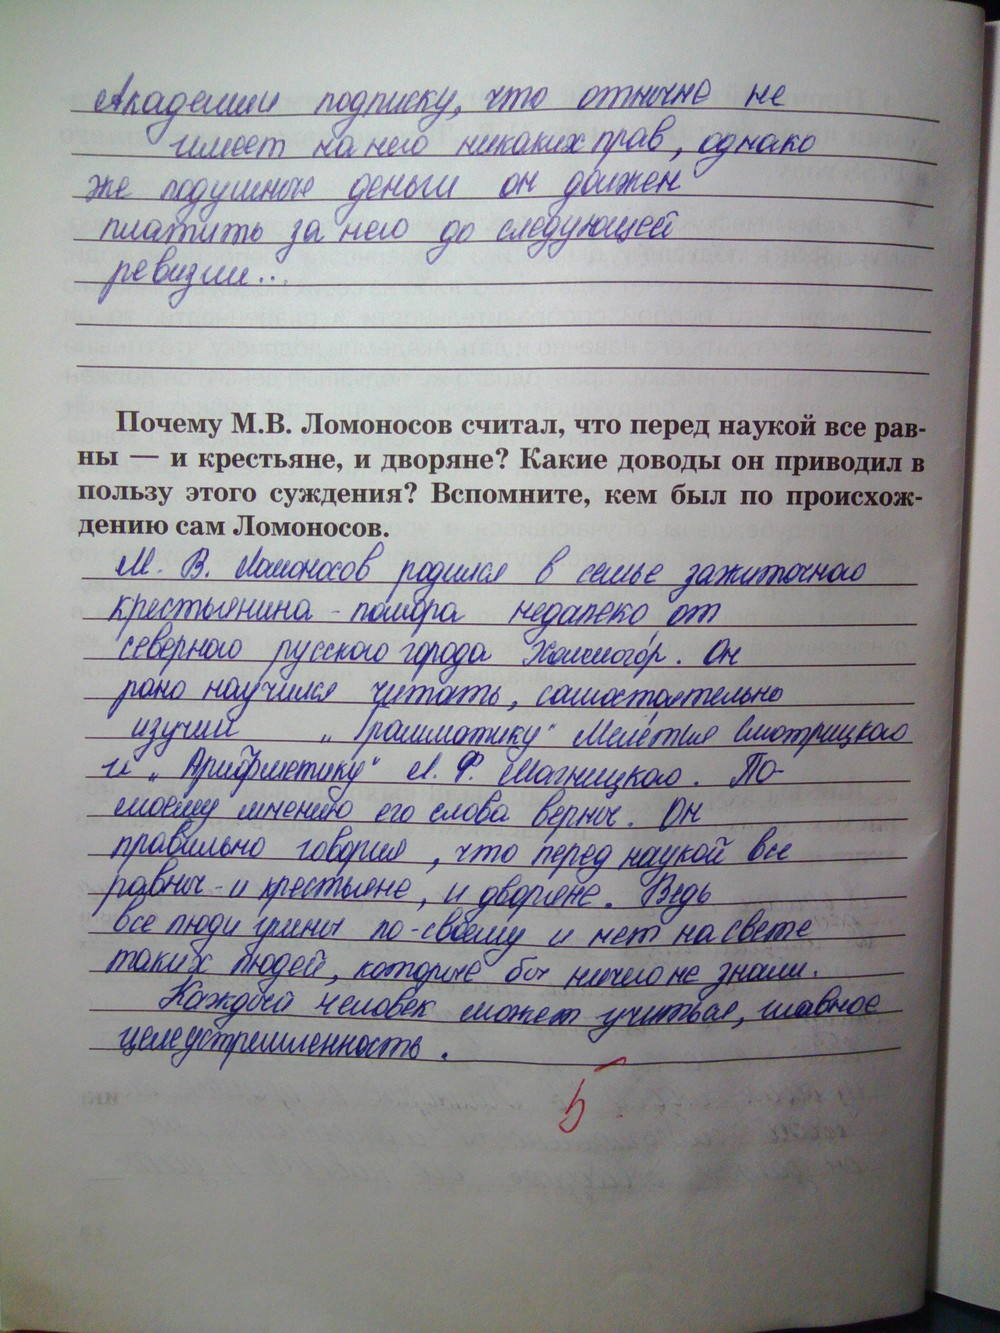 Академии подписку, что отныне не
имеет на него никаких прав, однако
же подушные деньги он должен
платить за него до следующей
ревизии...
Почему М.В. Ломоносов считал, что перед наукой все рав-
ны — и крестьяне, и дворяне? Какие доводы он приводил в
пользу этого суждения? Вспомните, кем был по происхож-
дению сам Ломоносов.
М. В. Ломоносов родился в семье зажиточного
крестьянина - помора недалеко от
северного русского города Холмогор. Он
рано научился читать, самостоятельно
изучил „Грамматику" Мелетия Смотрицкого
и „Арифметику" Л. Ф. Магницкого. По-
моему мнению его слова верны. Он
правильно говорил, что перед наукой все
равны - и крестьяне, и дворяне. Ведь
все люди умны по-своему и нет на свете
таких людей, которые бы ничего не знали.
Каждый человек может учиться, главное
целеустремленность.
5